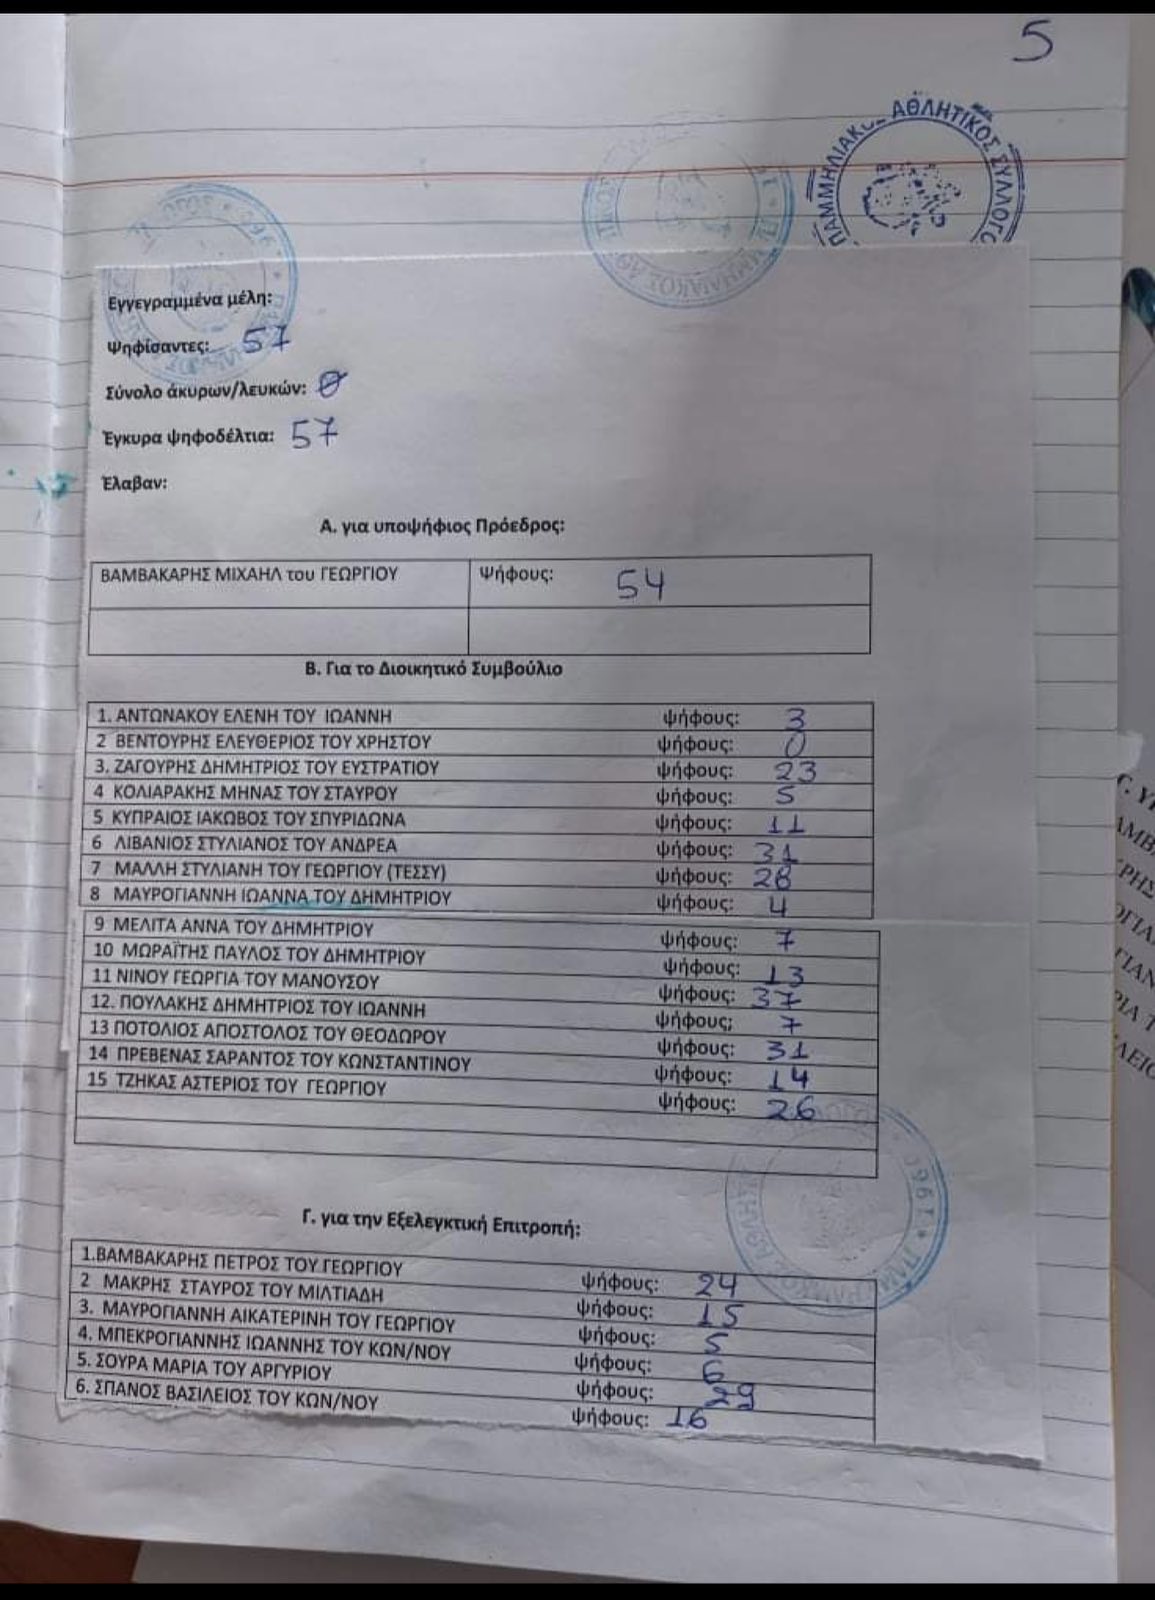 5
ΠΑΜΜΗΛΙΑΚΟΣ ΑΘΛΗΤΙΚΟΣ ΣΥΛΛΟΓΟ
Εγγεγραμμένα μέλη:
Ψηφίσαντες: 57
Σύνολο άκυρων/λευκών: 0
Έγκυρα ψηφοδέλτια: 57
Έλαβαν:
Α. για υποψήφιος Πρόεδρος:
ΒΑΜΒΑΚΑΡΗΣ ΜΙΧΑΗΛ του ΓΕΩΡΓΙΟΥ Ψήφους: 54
Β. Για το Διοικητικό Συμβούλιο
1. ΑΝΤΩΝΑΚΟΥ ΕΛΕΝΗ ΤΟΥ ΙΩΑΝΝΗ ψήφους: 3
2 ΒΕΝΤΟΥΡΗΣ ΕΛΕΥΘΕΡΙΟΣ ΤΟΥ ΧΡΗΣΤΟΥ ψήφους: 0
3. ΖΑΓΟΥΡΗΣ ΔΗΜΗΤΡΙΟΣ ΤΟΥ ΕΥΣΤΡΑΤΙΟΥ ψήφους: 23
4 ΚΟΛΙΑΡΑΚΗΣ ΜΗΝΑΣ ΤΟΥ ΣΤΑΥΡΟΥ ψήφους: 5
5 ΚΥΠΡΑΙΟΣ ΙΑΚΩΒΟΣ ΤΟΥ ΣΠΥΡΙΔΩΝΑ ψήφους: 11
6 ΛΙΒΑΝΙΟΣ ΣΤΥΛΙΑΝΟΣ ΤΟΥ ΑΝΔΡΕΑ ψήφους: 31
7 ΜΑΛΛΗ ΣΤΥΛΙΑΝΗ ΤΟΥ ΓΕΩΡΓΙΟΥ (ΤΕΣΣΥ) ψήφους: 28
8 ΜΑΥΡΟΓΙΑΝΝΗ ΙΩΑΝΝΑ ΤΟΥ ΔΗΜΗΤΡΙΟΥ ψήφους: 4
9 ΜΕΛΙΤΑ ΑΝΝΑ ΤΟΥ ΔΗΜΗΤΡΙΟΥ ψήφους: 7
10 ΜΩΡΑΪΤΗΣ ΠΑΥΛΟΣ ΤΟΥ ΔΗΜΗΤΡΙΟΥ ψήφους: 13
11 ΝΙΝΟΥ ΓΕΩΡΓΙΑ ΤΟΥ ΜΑΝΟΥΣΟΥ ψήφους: 37
12. ΠΟΥΛΑΚΗΣ ΔΗΜΗΤΡΙΟΣ ΤΟΥ ΙΩΑΝΝΗ ψήφους; 7
13 ΠΟΤΟΛΙΟΣ ΑΠΟΣΤΟΛΟΣ ΤΟΥ ΘΕΟΔΩΡΟΥ ψήφους: 31
14 ΠΡΕΒΕΝΑΣ ΣΑΡΑΝΤΟΣ ΤΟΥ ΚΩΝΣΤΑΝΤΙΝΟΥ ψήφους: 14
15 ΤΖΗΚΑΣ ΑΣΤΕΡΙΟΣ ΤΟΥ ΓΕΩΡΓΙΟΥ ψήφους: 26
Γ. για την Εξελεγκτική Επιτροπή:
1.ΒΑΜΒΑΚΑΡΗΣ ΠΕΤΡΟΣ ΤΟΥ ΓΕΩΡΓΙΟΥ ψήφους: 24
2 ΜΑΚΡΗΣ ΣΤΑΥΡΟΣ ΤΟΥ ΜΙΛΤΙΑΔΗ ψήφους: 15
3. ΜΑΥΡΟΓΙΑΝΝΗ ΑΙΚΑΤΕΡΙΝΗ ΤΟΥ ΓΕΩΡΓΙΟΥ ψήφους: 5
4. ΜΠΕΚΡΟΓΙΑΝΝΗΣ ΙΩΑΝΝΗΣ ΤΟΥ ΚΩΝ/ΝΟΥ ψήφους: 6
5. ΣΟΥΡΑ ΜΑΡΙΑ ΤΟΥ ΑΡΓΥΡΙΟΥ ψήφους: 29
6. ΣΠΑΝΟΣ ΒΑΣΙΛΕΙΟΣ ΤΟΥ ΚΩΝ/ΝΟΥ ψήφους: 16